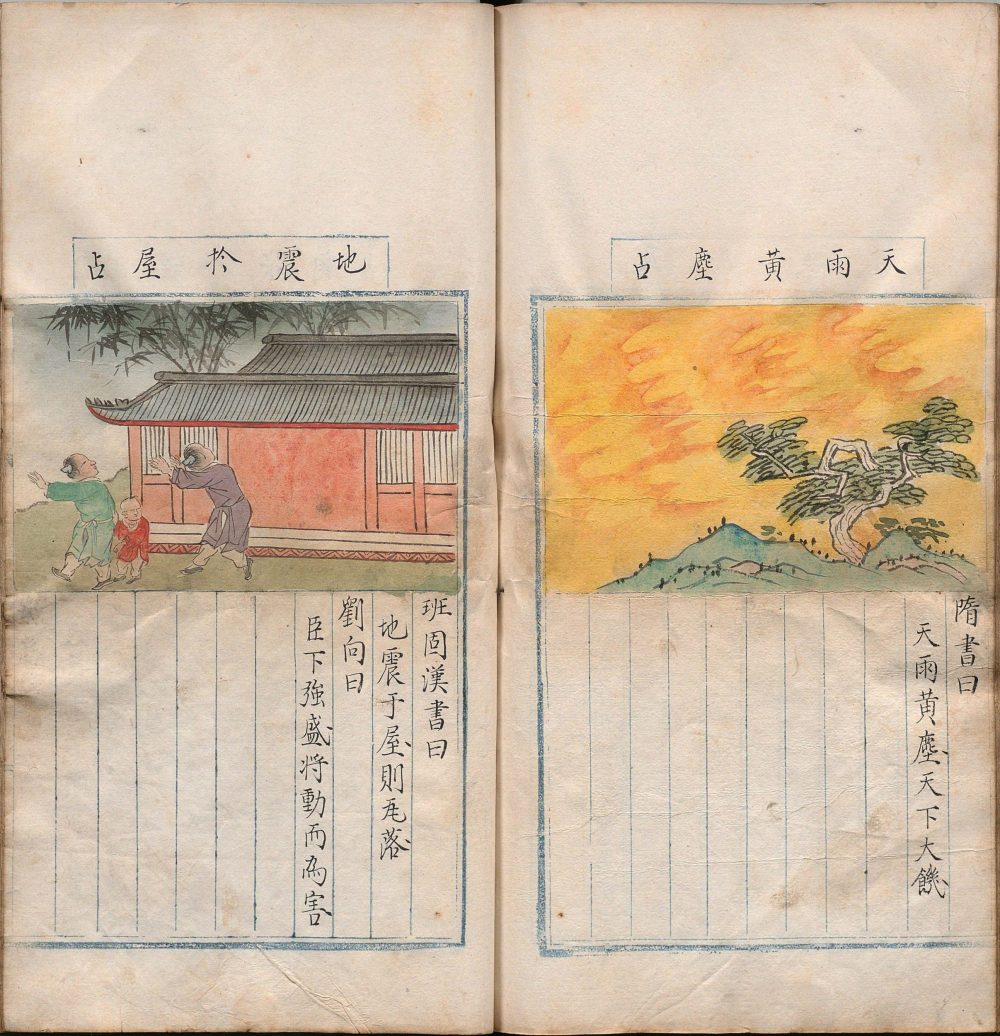 天雨黃塵占
隋書曰
天雨黃塵天下大饑
地震於屋占
班固漢書曰
地震于屋則瓦落
劉向曰
臣下強盛将動而為害